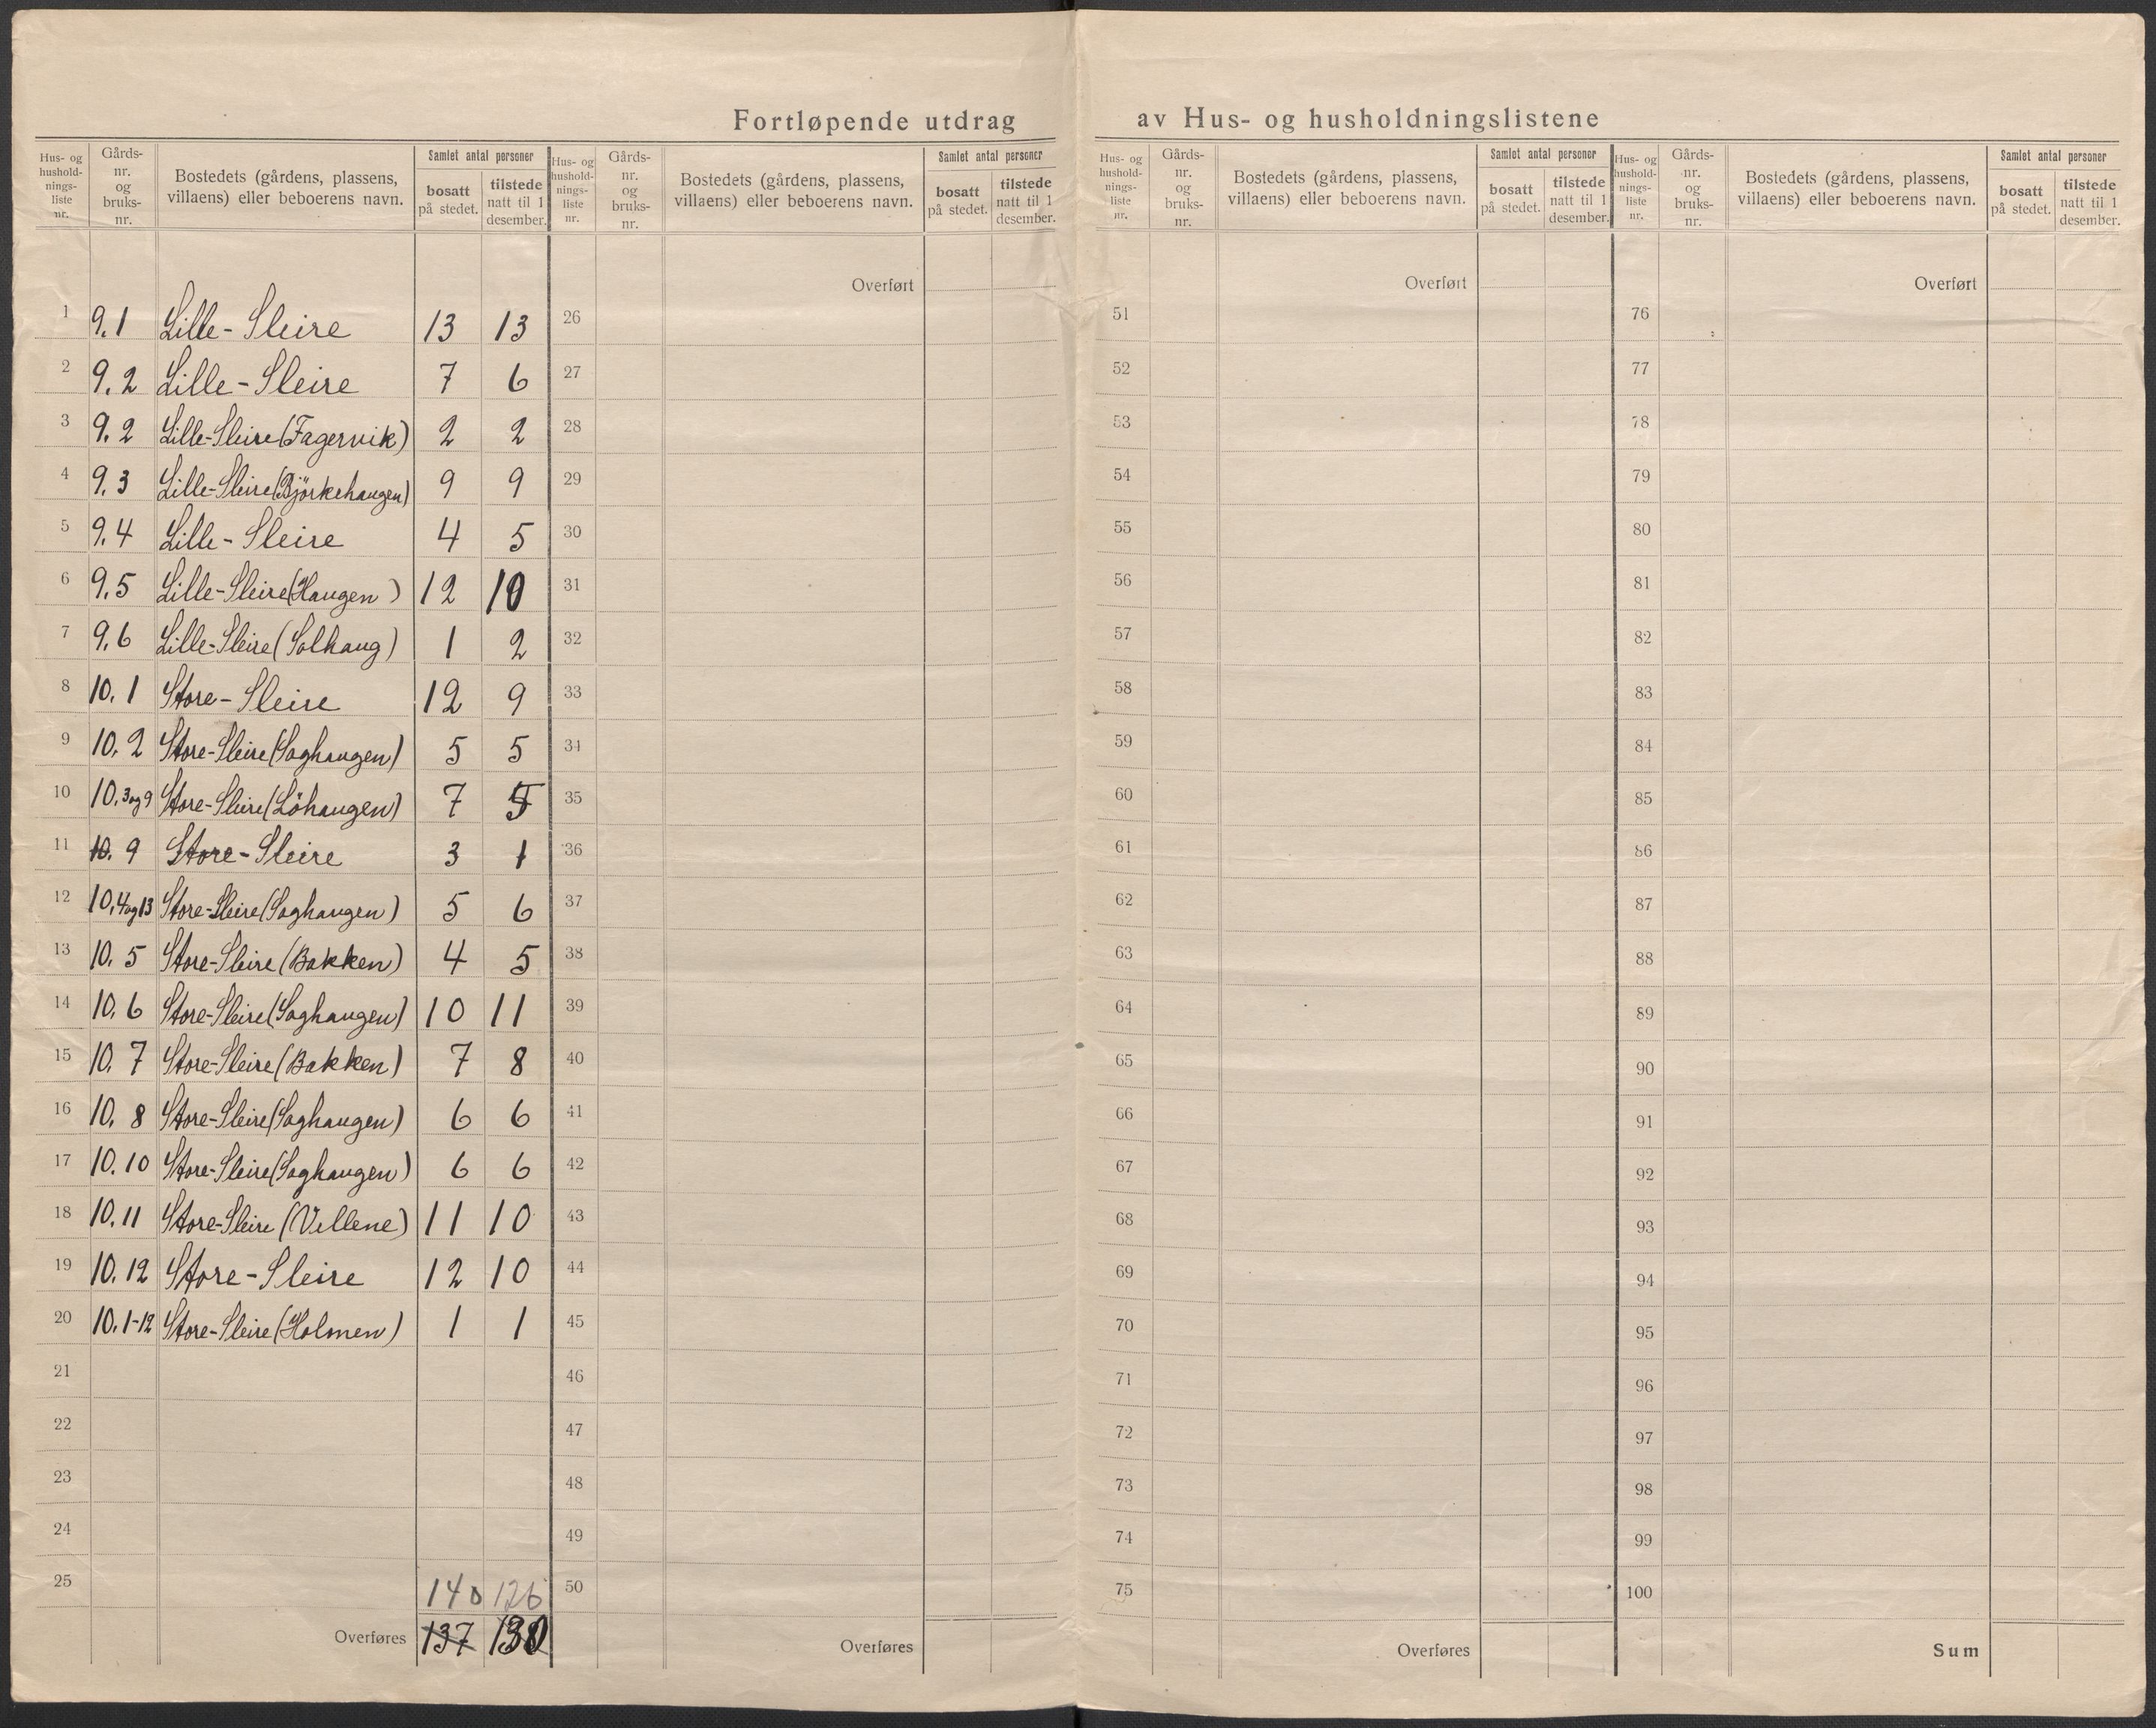 Fortløpende utdrag av Hus- og husholdningslistene
Hus- og hushold-nings-liste nr. Gårds-nr. og bruks-nr. Bostedets (gårdens, plassens, villaens) eller beboerens navn. Samlet antal personer bosatt på stedet. tilstede natt til 1 desember.
Hus- og hushold-nings-liste nr. Gårds-nr. og bruks-nr. Bostedets (gårdens, plassens, villaens) eller beboerens navn. Samlet antal personer bosatt på stedet. tilstede natt til 1 desember.
Hus- og hushold-nings-liste nr. Gårds-nr. og bruks-nr. Bostedets (gårdens, plassens, villaens) eller beboerens navn. Samlet antal personer bosatt på stedet. tilstede natt til 1 desember.
Hus- og hushold-nings-liste nr. Gårds-nr. og bruks-nr. Bostedets (gårdens, plassens, villaens) eller beboerens navn. Samlet antal personer bosatt på stedet. tilstede natt til 1 desember.
Overført Overført Overført
1 9.1 Lille-Sleire 13 13 26 51 76
2 9.2 Lille-Sleire 7 6 27 52 77
3 9.2 Lille-Sleire (Fagervik) 2 2 28 53 78
4 9.3 Lille-Sleire (Björkehaugen) 9 9 29 54 79
5 9.4 Lille-Sleire 4 5 30 55 80
6 9.5 Lille-Sleire (Haugen) 12 10 31 56 81
7 9.6 Lille-Sleire (Solhaug) 1 2 32 57 82
8 10.1 Store-Sleire 12 9 33 58 83
9 10.2 Store-Sleire (Saghaugen) 5 5 34 59 84
10 10.3og9 Store-Sleire (Löhaugen) 7 5 35 60 85
11 10.9 Store-Sleire 3 1 36 61 86
12 10.4og13 Store-Sleire (Saghaugen) 5 6 37 62 87
13 10.5 Store-Sleire (Bakken) 4 5 38 63 88
14 10.6 Store-Sleire (Saghaugen) 10 11 39 64 89
15 10.7 Store-Sleire (Bakken) 7 8 40 65 90
16 10.8 Store-Sleire (Saghaugen) 6 6 41 66 91
17 10.10 Store-Sleire (Saghaugen) 6 6 42 67 92
18 10.11 Store-Sleire (Vellene) 11 10 43 68 93
19 10.12 Store-Sleire 12 10 44 69 94
20 10.1-12 Store-Sleire (Holmen) 1 1 45 70 95
21 46 71 96
22 47 72 97
23 48 73 98
24 49 74 99
25 140 126 50 75 100
Overføres 137 130 Overføres Overføres Sum